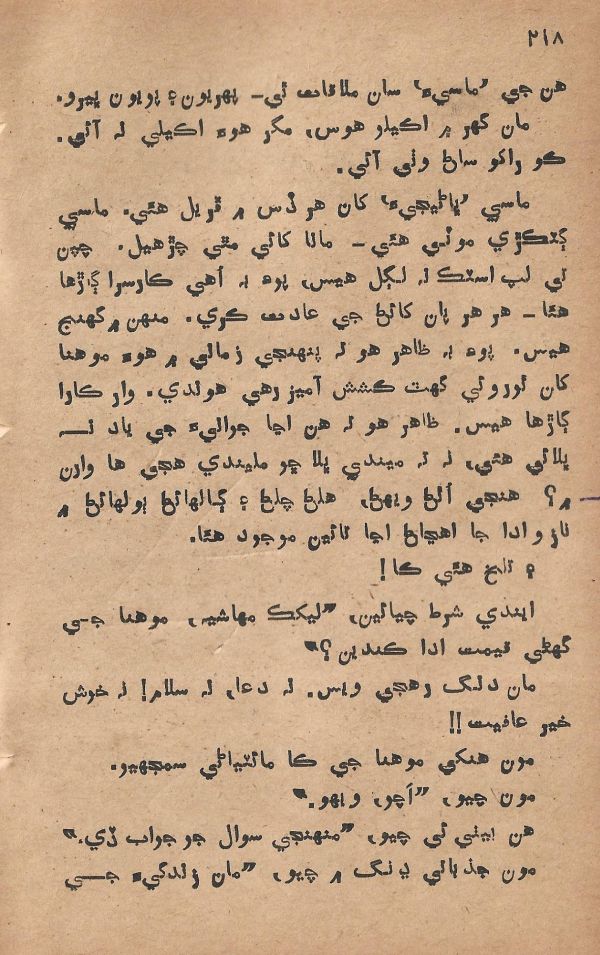 ۲۱۸
هن جي ’ماسيءَ‘ سان ملاقات ٿي_ پهريون ۽ پويون ڀيرو.
مان گهر ۾ اڪيلو هوس، مگر هوءَ اڪيلي نه آئي.
ڪو راڪو ساڻ وٺي آئي.
ماسي ’ڀاڻيجيءَ‘ کان هر ڏس ۾ ٿريل هئي. ماسي
ڳٽڪڙي موٽي هئي_ ماٺا کائي مٿي چڙهيل. چپن
تي لپ اسٽڪ نه لڳل هيس، پوءِ به اُهي ڪارسرا ڳاڙها
هئا_ هر هر پان کائڻ جي عادت ڪري. منهن ۾ گهنج
هيس. پوءِ به ظاهر هو ته پنهنجي زماني ۾ هوءَ موهنا
کان ٿورو ئي گهٽ ڪشش آميز رهي هوندي. وار ڪارا
ڳاڙها هيس. ظاهر هو ته هن اڃا جوانيءَ جي ياد نه
ڀلائي هئي، نه ته ميندي ڀلا ڇو مليندي هجي ها وارن
۾؟ هنجي اُٿڻ ويهڻ، هلڻ چلڻ ۽ ڳالهائڻ ٻولهائڻ ۾
ناز و ادا جا اهڃاڻ اڃا تائين موجود هئا.
۽ تلخ هئي ڪا!
ايندي شرط چيائين، ”ليکڪ مهاشيه، موهنا جي
گهڻي قيمت ادا ڪندين؟“
مان دنگ رهجي ويس. نه دعا، نه سلام! نه خوش
خير عافيت!!
مون هنکي موهنا جي ڪا مائٽياڻي سمجهيو.
مون چيو، ”اَچو، ويهو.“
هن بيٺي ئي چيو، ”منهنجي سوال جو جواب ڏي.“
مون جذباتي ڍنگ ۾ چيو، ”مان زندگيءَ جي